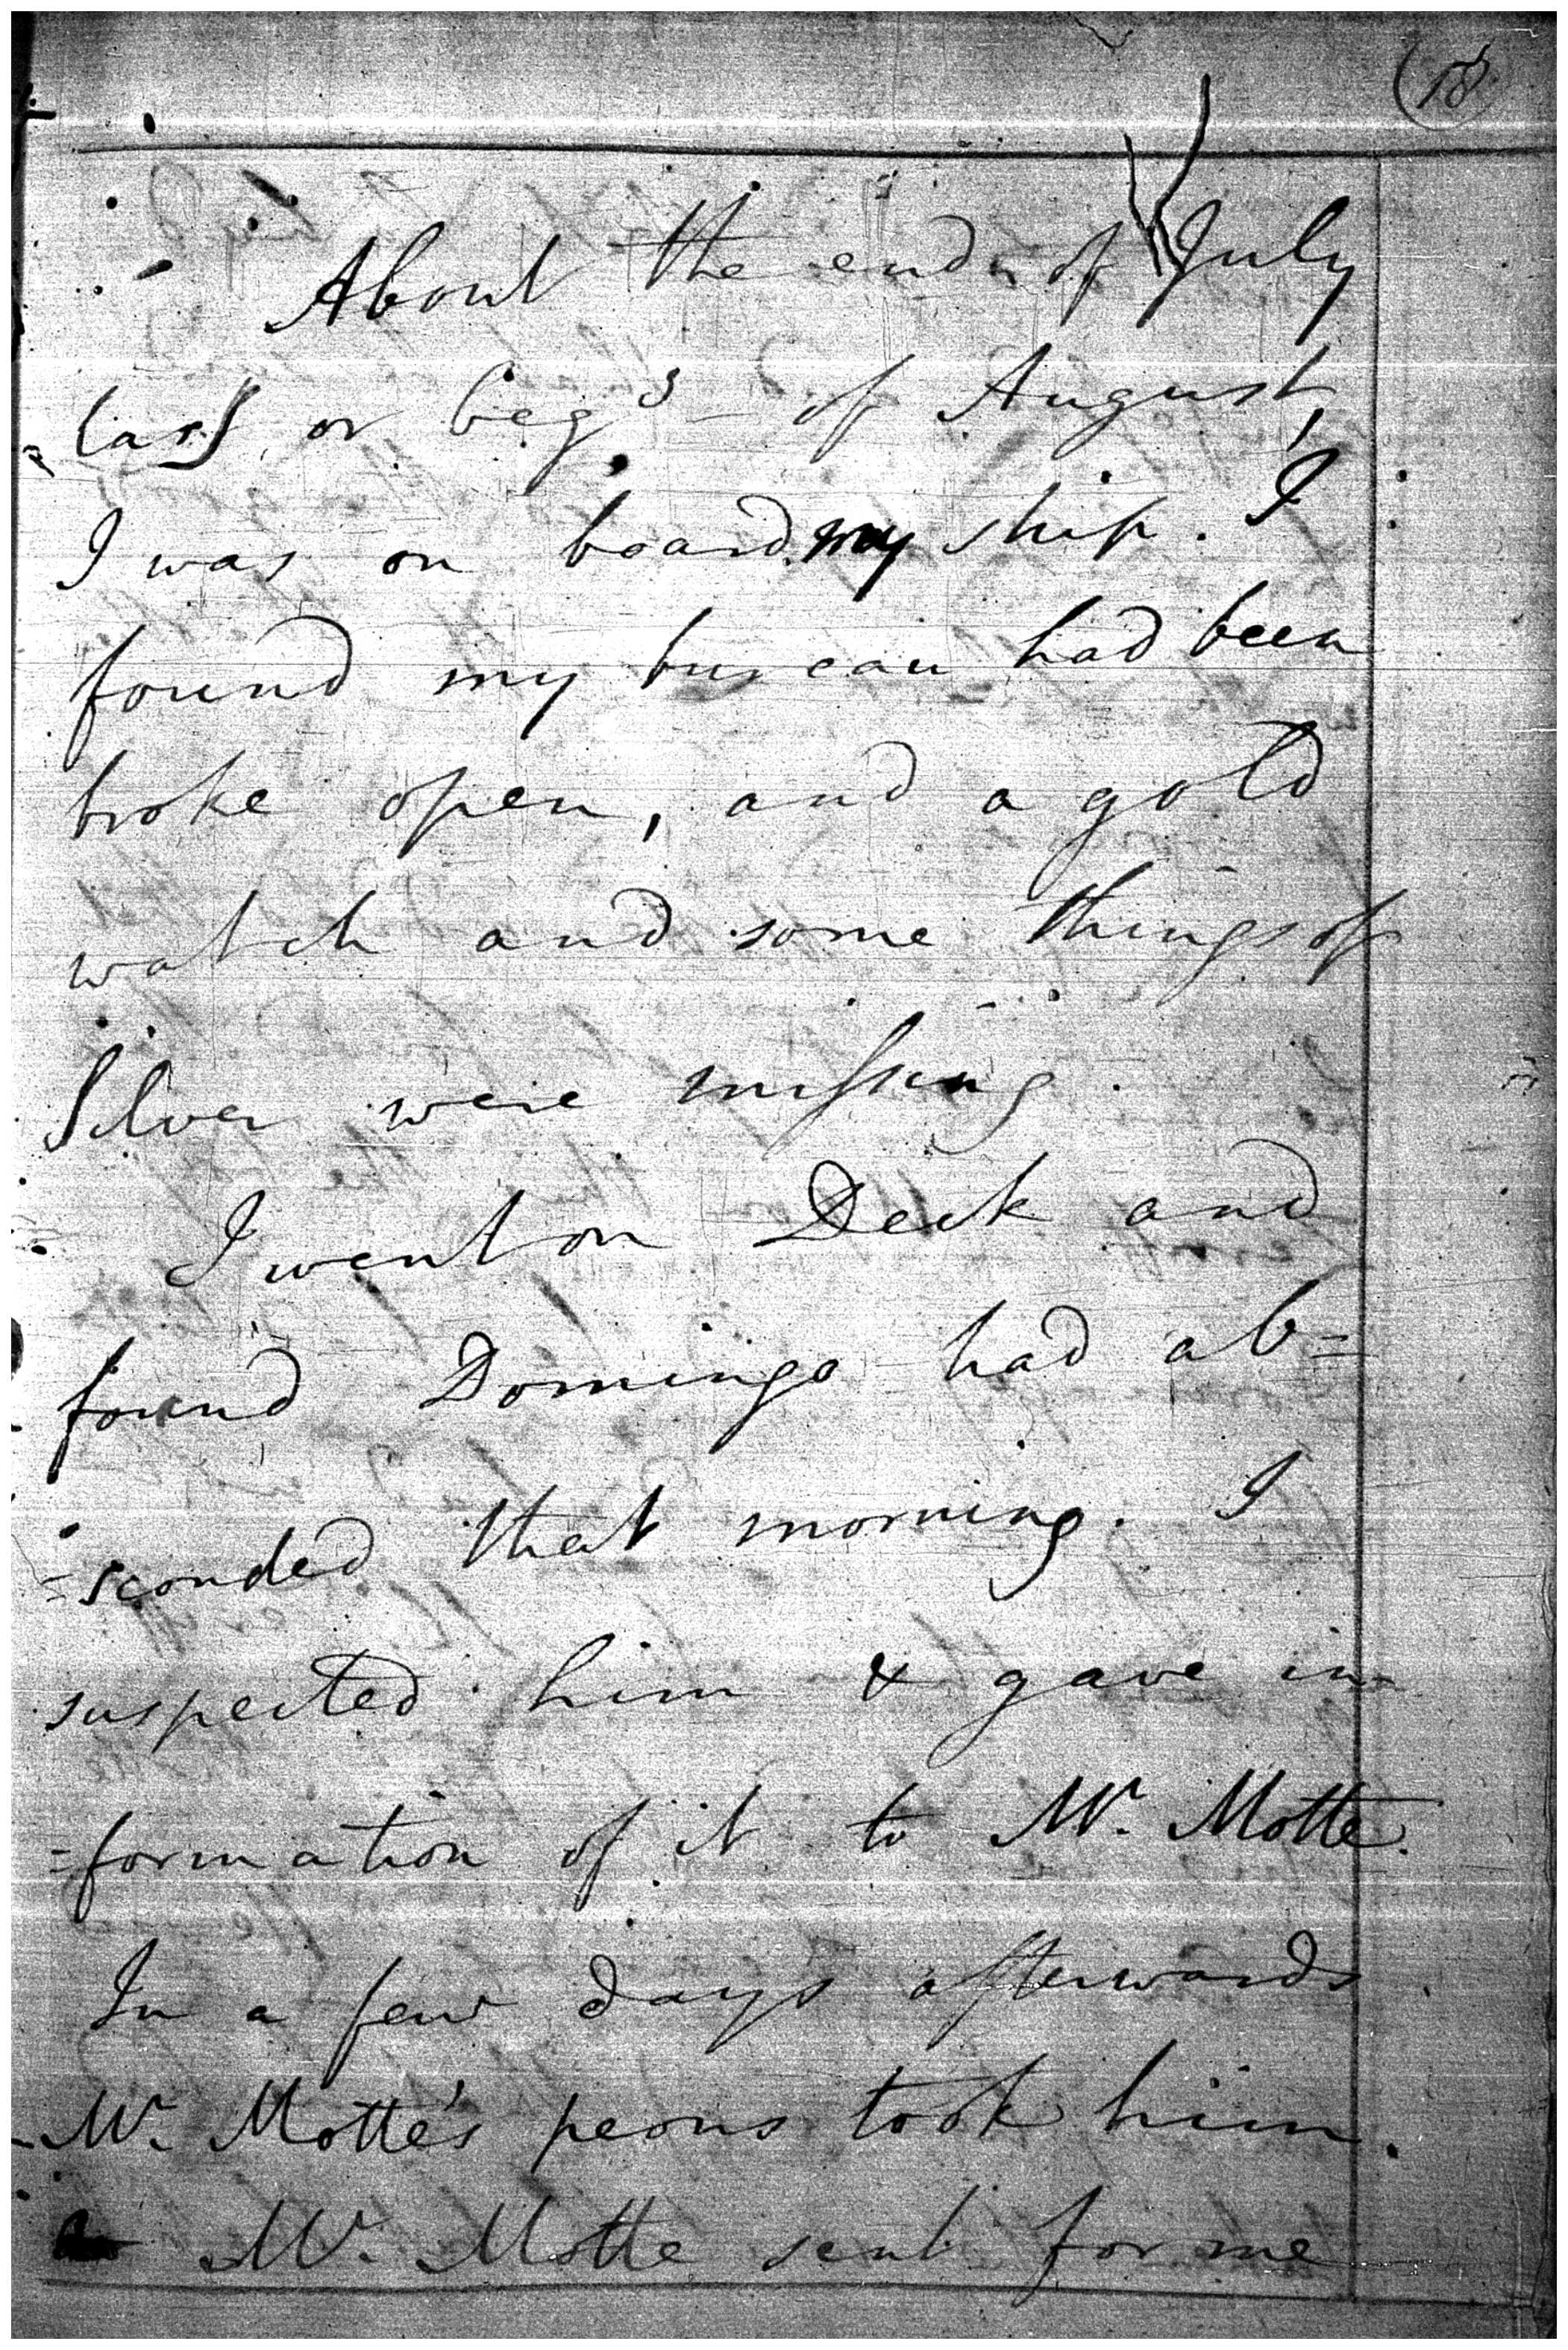 18
About the end of July
last or beg^g of August,
I was on board my ship. I
found my bureau had been
broke open, and a gold
watch and some things of
Silver were missing.
I went on Deck and
found Domingo had ab=
=sconded that morning. I
suspected him & gave in=
=formation of it to Mr. Motte.
In a few days afterwards
Mr. Motte's peons took him.
Mr. Motte sent for me